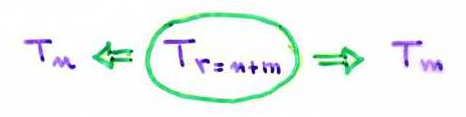 Tₙ ⇐ Tᵣ₌ₙ₊ₘ ⇒ Tₘ